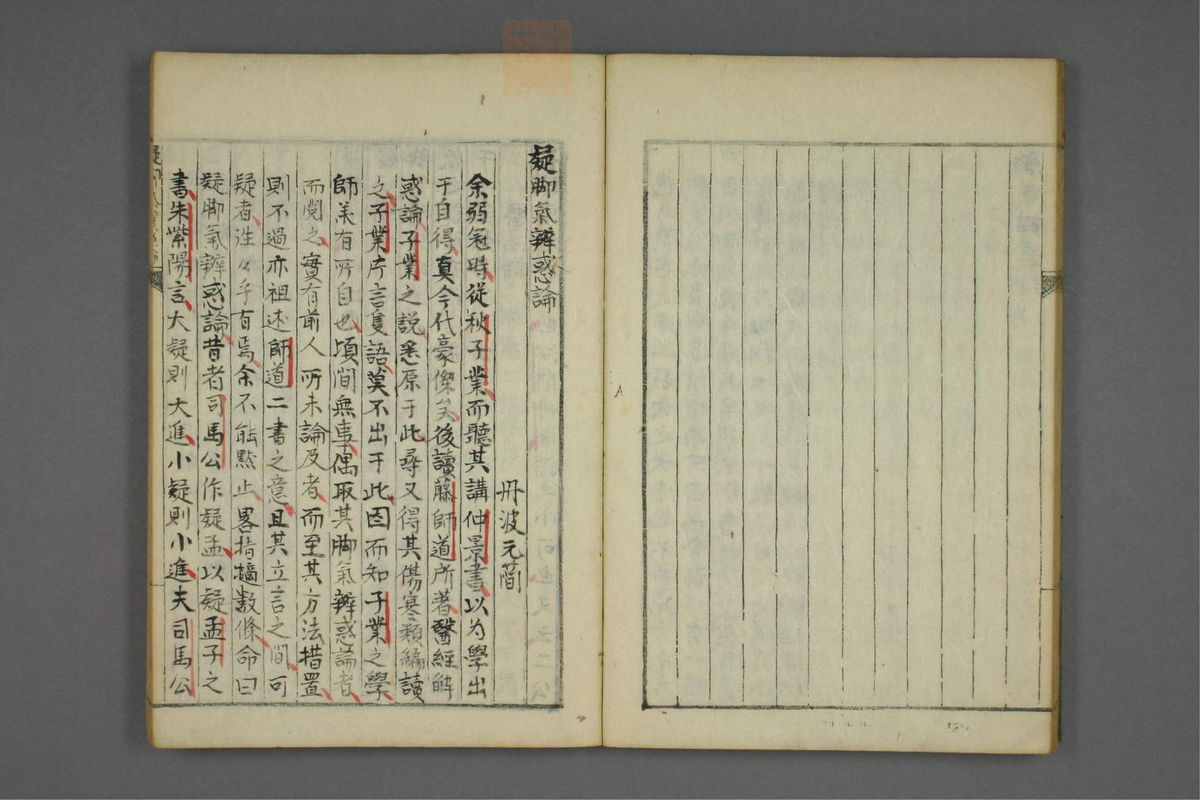 疑脚氣辨惑論
丹波元簡
余弱冠時從秋子業而聽其講仲景書以为學出
于自得真今代豪傑矣後讀藤師道所著醫經解
惑論子業之說悉原于此尋又得其傷寒類編讀
之子業片言隻語莫不出于此因而知子業之學
師羙有所自也頃間無事偶取其脚氣辨惑論者
而閱之實有前人所未論及者而至其方法措置
則不過亦祖述師道二書之意且其立言之間可
疑者徃々乎有焉余不能默止畧指摘數條命曰
疑脚氣辨惑論昔者司馬公作疑孟以疑孟子之
書朱紫陽言大疑則大進小疑則小進夫司馬公